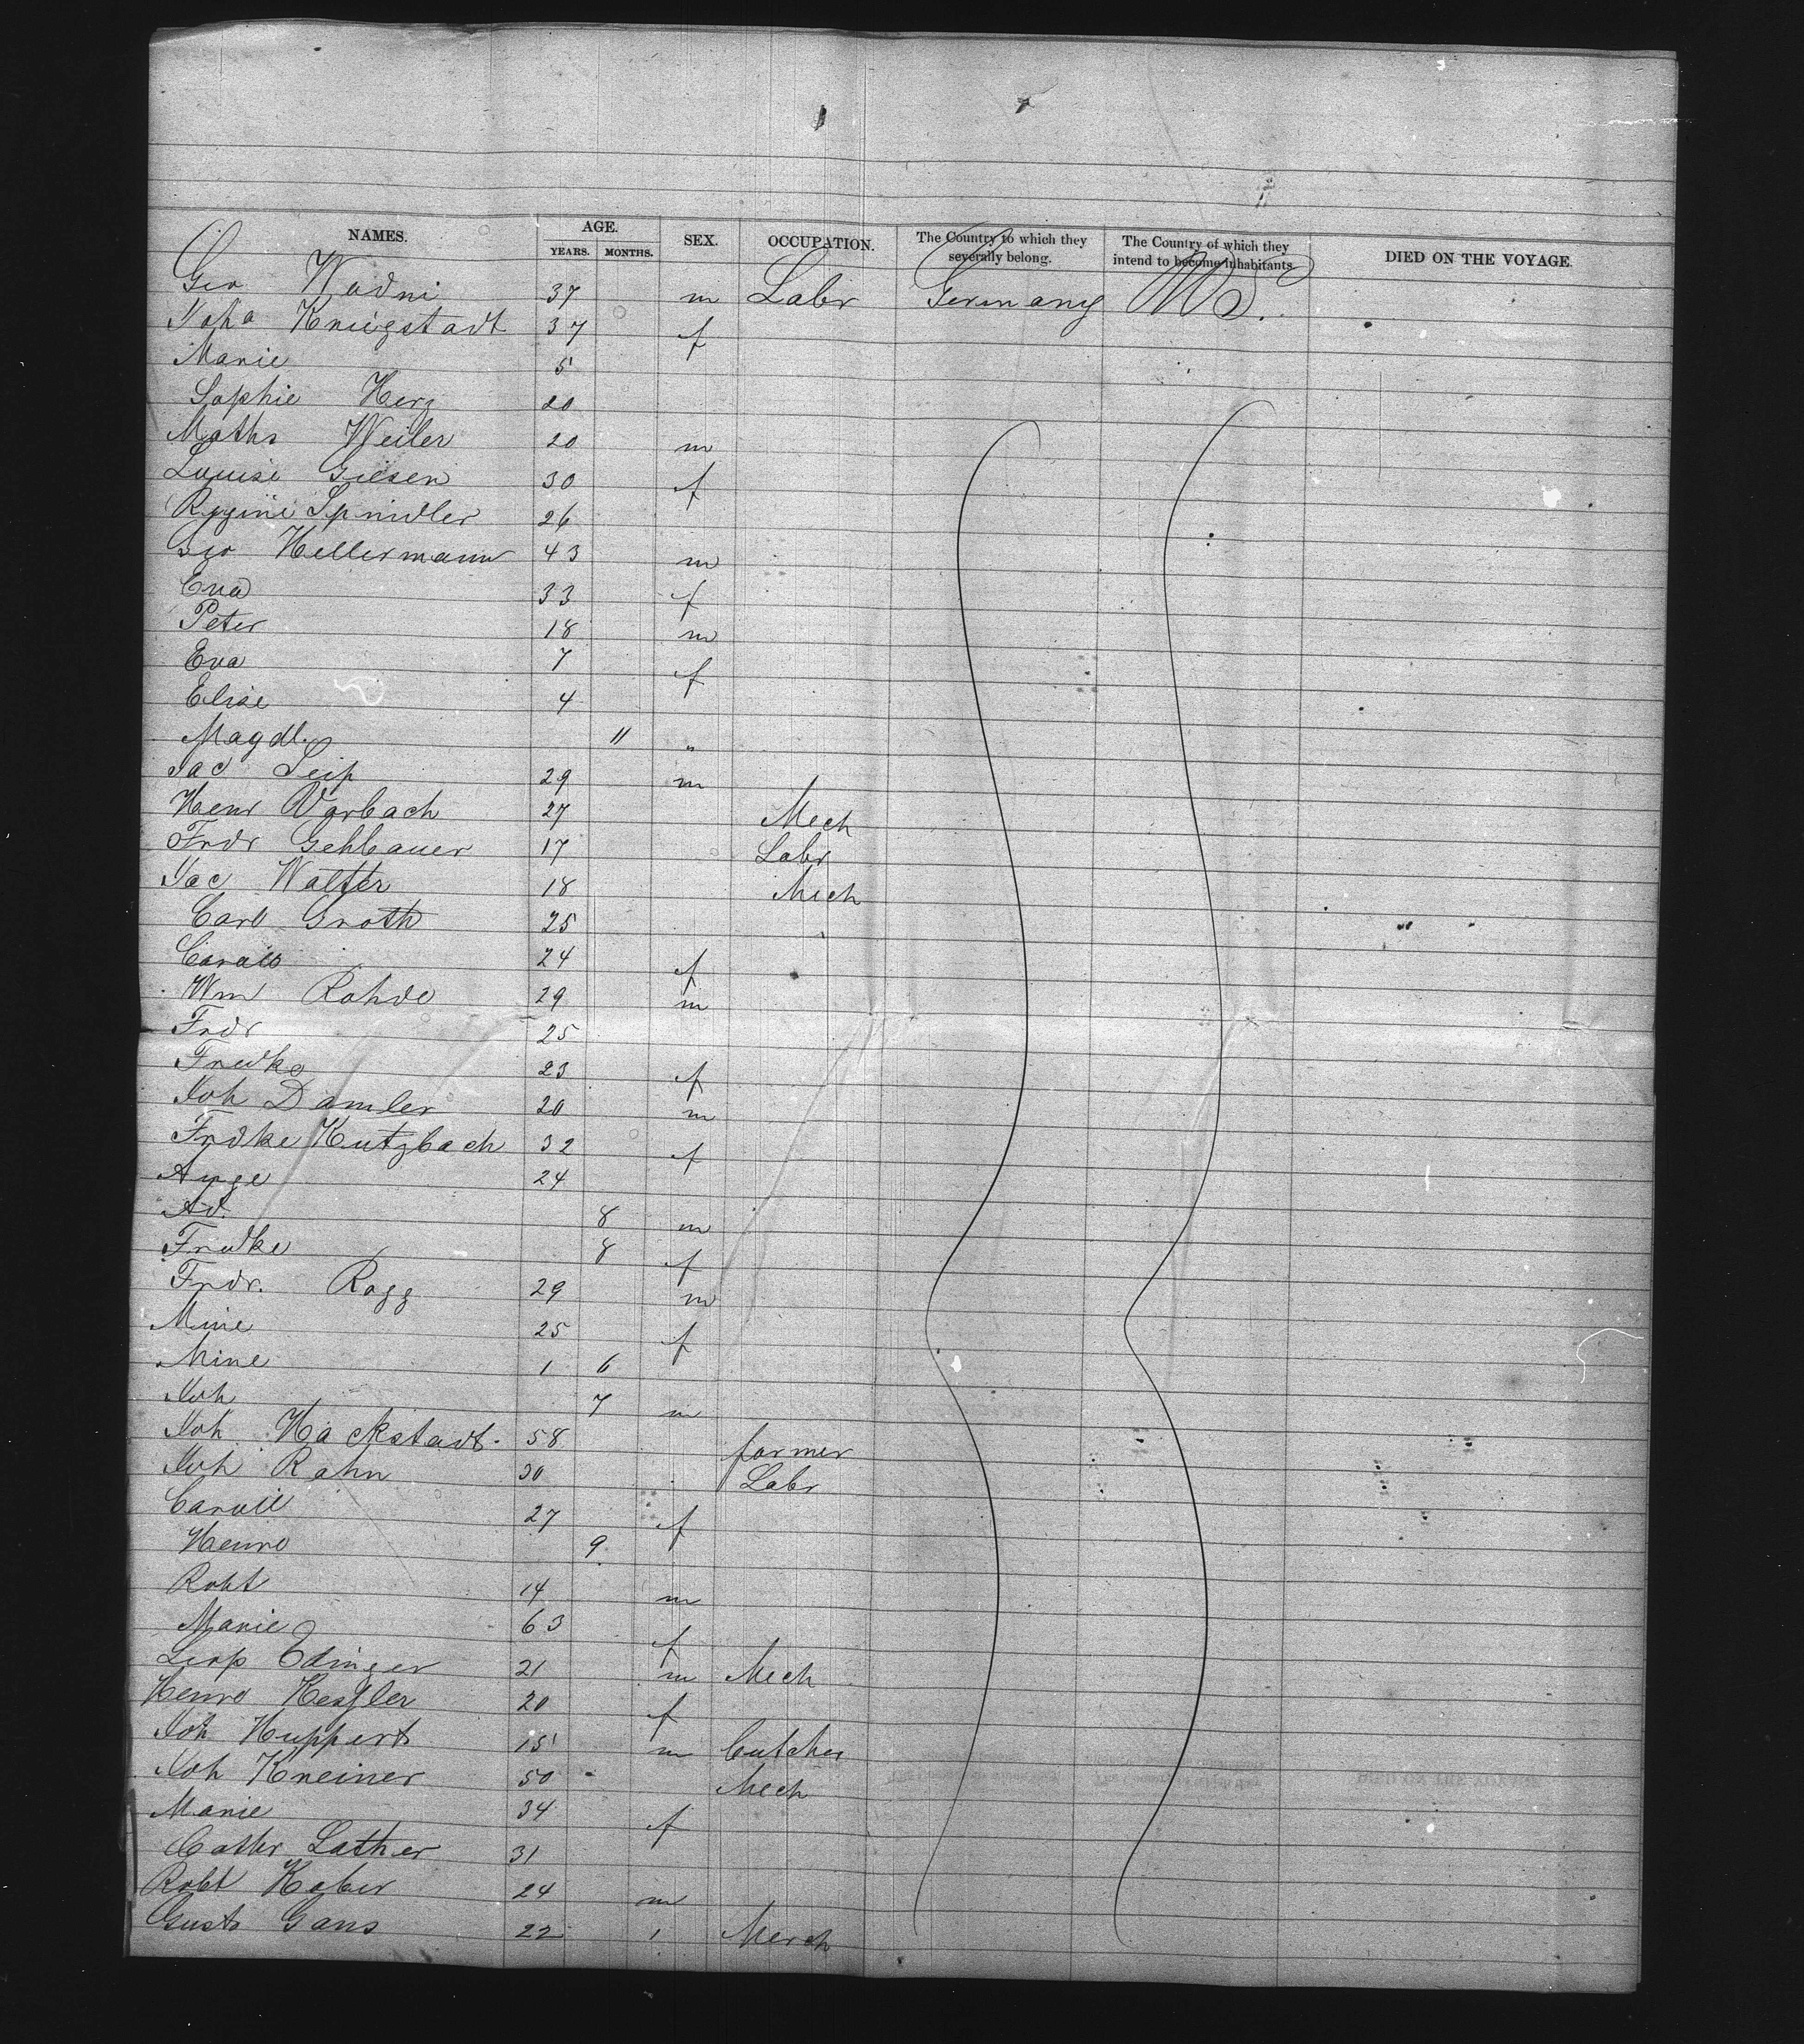 NAMES. AGE. YEARS. MONTHS. SEX. OCCUPATION. The Country to which they severally belong. The Country of which they intend to become inhabitants. DIED ON THE VOYAGE.
Geo Wadni 37 m Labr Germany US.
Joha Kringstadt 37 f
Marie 5
Sophie Herz 20
Maths Weiler 20 m
Louise Giesen 30 f
Regine Spindler 26
Geo Hellermann 43 m
Eva 33 f
Peter 18 m
Eva 7 f
Elise 4
Magdl. 11 "
Jac Leip 29 m
Henr Vorbach 27 Mech
Frdr Gehbauer 17 Labr
Jac Walter 18 Mech
Carl Groth 25
24 f
Wm Rohde 29 m
Frdr 25
Fredke 23 f
Joh Damler 20 m
Frdke Kutzbach 32 f
Auge 24
Ad. 8 m
Fredke 8 f
Frdr. Ragg 29 m
Mine 25 f
Mine 1 6
Joh 7 m
Joh Hackstadt 58 farmer
Joh Rahn 30 Labr
27 f
Henre 9
Robt 14 m
Marie 63 f
Leop Edinger 21 m Mech
Henre Kessler 20 f
Joh Huppert 15 m butcher
Joh Kreiner 50 Mech
Marie 34 f
Cathr Lather 31
Robt Kober 24 m
Gust Gans 22 1 Merch